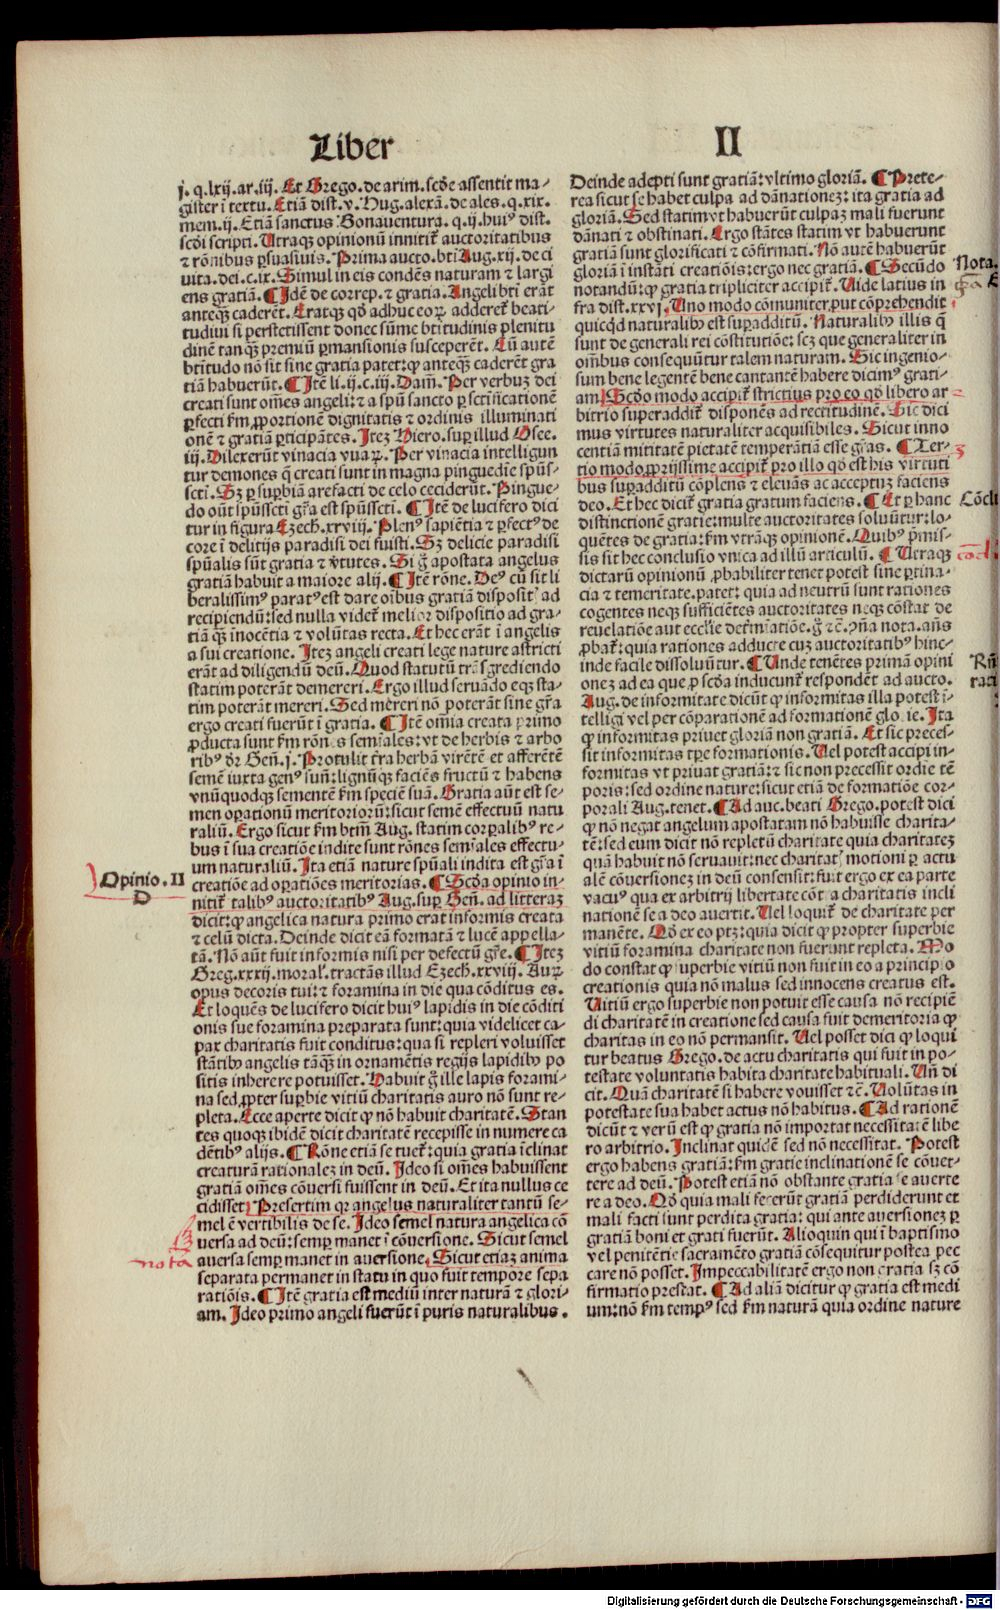 Liber
II
j. q. lxij. ar. iij. Et Grego. de arim. scđe assentit ma⸗
gister ī textu. Etiā dist. v. Hug. alexā. de ales. q. xix.
mem. ij. Etiā sanctus Bonauentura. q. ij. huiꝰ dist.
scđi scripti. Utraqꝫ opinionū innitit̃ auctoritatibus
⁊ rōnibus ꝑsuasiuis. Prima aucto. bti Aug. xij. de ci
uita. dei. c. ix. Simul in eis condēs naturam ⁊ largi
ens gratiā. ¶ Idē de correp. ⁊ gratia. Angeli bti erāt
anteqꝫ caderēt. Eratqꝫ qđ adhuc eoꝝ adderet̃ beati⸗
tudini si perstetissent donec sūme btitudinis plenitu
dinē tanqꝫ premiū ꝑmansionis susceperēt. Cū autē
btitudo nō sit sine gratia patet: ꝙ anteqꝫ caderēt gra
tiā habuerūt. ¶ Itē li. ij. c. iij. Dam̄. Per verbuꝫ dei
creati sunt om̄es angeli: ⁊ a spū sancto ꝑ sctificationē
ꝑfecti km̄ ꝓportionē dignitatis ⁊ ordinis illuminati
onē ⁊ gratiā ꝑticipātes. Iteꝫ Hiero. suꝑ illud Osee.
iij. Dilexerūt vinacia vuaꝝ. Per vinacia intelligun
tur demones q̄ creati sunt in magna pinguedīe spūs⸗
scti. Sꝫ ꝑ suꝑbiā arefacti de celo ceciderūt. Pingue⸗
do oūt spūsscti gr̄a est spūsscti. ¶ Itē de lucifero dici
tur in figura Ezech. xxviij. Plenꝰ sapiētia ⁊ ꝑfectꝰ de
core ī delitijs paradisi dei fuisti. Sꝫ delicie paradisi
spūalis sūt gratia ⁊ v̓tutes. Si g̊ apostata angelus
gratiā habuit a maiore alij. ¶ Itē rōne. Deꝰ cū sit li
beralissimꝰ paratꝰ est dare oībus gratiā disposit̃ ad
recipiendū: sed nulla videt̃ melior dispositio ad gra⸗
tiā qꝫ inocētia ⁊ volūtas recta. Et hec erāt ī angelis
a sui creatione. Itez angeli creati lege nature astricti
erāt ad diligendū deū. Quod statutū trāsgrediendo
statim poterāt demereri. Ergo illud seruādo eqꝫ sta⸗
tim poterāt mereri. Sed mereri nō poterāt sine gr̄a
ergo creati fuerūt ī gratia. ¶ Itē om̄ia creata primo
ꝓducta sunt km̄ rōnes semīales: vt de herbis ⁊ arbo
ribꝰ dr̄ Gen̄. j. Protulit tr̄a herbā virētē et afferētē
semē iuxta genꝰ suū: lignūqꝫ faciēs fructū ⁊ habens
vnūquodqꝫ sementē km̄ speciē suā. Gratia aūt est se⸗
men oꝑationū meritorioꝝ: sicut semē effectuū natu
raliū. Ergo sicut km̄ btm̄ Aug. statim corꝑalibꝰ re⸗
bus ī sua creatiōe indite sunt rōnes semīales effectu⸗
um naturaliū. Ita etiā nature spūali indita est gr̄a ī
creatiōe ad oꝑatiōes meritorias. ¶ Scđa opinio in⸗
nitit̃ talibꝰ auctoritatibꝰ Aug. suꝑ Gen̄. ad litteraꝫ
dicit: ꝙ angelica natura primo erat informis creata
⁊ celū dicta. Deinde dicit eā formatā ⁊ lucē appella⸗
tā. Nō aūt fuit informis nisi per defectū gr̄e. ¶ Iteꝫ
Greg. xxxij. moral̓. tractās illud Ezech. xxviij. Auꝝ
opus decoris tui: ⁊ foramina in die qua cōditus es.
Et loquēs de lucifero dicit huiꝰ lapidis in die cōditi
onis sue foramina preparata sunt: quia videlicet ca⸗
pax charitatis fuit conditus: qua si repleri voluisset
stātibꝰ angelis tāqꝫ in ornamētis regijs lapidibꝰ po
sitis inherere potuisset. Habuit g̊ ille lapis forami⸗
na sed ꝓpter suꝑbie vitiū charitatis auro nō sunt re⸗
pleta. Ecce aperte dicit ꝙ nō habuit charitatē. Stan
tes quoqꝫ ibidē dicit charitatē recepisse in numere ca
dētibꝰ alijs. ¶ Rōne etiā se tuet̃: quia gratia īclinat
creaturā rationaleꝫ in deū. Ideo si om̄es habuissent
gratiā om̄es cōuersi fuissent in deū. Et ita nullus ce
cidisset. Presertim qꝛ angelus naturaliter tantū se⸗
mel ē vertibilis de se. Ideo semel natura angelica cō
uersa ad deū: semꝑ manet ī cōuersione. Sicut semel
auersa semꝑ manet in auersione. Sicut etiaꝫ anima
separata permanet in statu in quo fuit tempore sepa
ratiōis. ¶ Itē gratia est mediū inter naturā ⁊ glori⸗
am. Ideo primo angeli fuerūt ī puris naturalibus.
Opinio. II
D
nota
Deinde adepti sunt gratiā: vltimo gloriā. ¶ Prete⸗
rea sicut se habet culpa ad dānationeꝫ: ita gratia ad
gloriā. Sed statim vt habuerūt culpaꝫ mali fuerunt
dānati ⁊ obstinati. Ergo stātes statim vt habuerunt
gratiā sunt glorificati ⁊ cōfirmati. Nō autē habuerūt
gloriā ī instāti creatiōis: ergo nec gratiā. ¶ Secūdo
notandū: ꝙ gratia tripliciter accipit̃. Uide latius in
fra dist. xxvj. Uno modo cōmuniter, put cōprehendit
quicqđ naturalibꝰ est suꝑadditū. Naturalibꝰ illis q̄
sunt de generali rei cōstitutiōe: scꝫ que generaliter in
om̄ibus consequūtur talem naturam. Sic ingenio⸗
sum bene legentē bene cantantē habere dicimꝰ grati⸗
am. Scđo modo accipit̃ strictius pro eo qđ libero ar⸗
bitrio superaddit̃ disponēs ad rectitudinē. Sic dici
mus virtutes naturaliter acquisibiles. Sicut inno
centiā mititatē pietatē temperātiā esse gr̄as. ¶ Ter⸗
tio modo ꝓprijssime accipit̃ pro illo qđ est his virtuti
bus suꝑadditū cōplens ⁊ eleuās ac acceptuꝫ faciens
deo. Et hec dicit̃ gratia gratum faciens. ¶ Et ꝑ hanc
distinctionē gratie: multe auctoritates soluūtur: lo⸗
quētes de gratia: km̄ vtrāqꝫ opinionē. Quibꝰ p̄mis⸗
sis sit hec conclusio vnica ad illū articulū. ¶ Utraqꝫ
dictarū opinionū ꝓbabiliter teneri potest sine ꝑtina⸗
cia ⁊ temeritate. patet: quia ad neutrū sunt rationes
cogentes neqꝫ sufficiētes auctoritates neqꝫ cōstat de
reuelatiōe aut ecclīe determīatiōe. g̊ ⁊c̄. ꝯn̄a nota. an̄s
ꝓbat̃: quia rationes adducte cuꝫ auctoritatibꝰ hinc⸗
inde facile dissoluūtur. ¶ Unde tenētes primā opini
oneꝫ ad ea que ꝓ scđa inducunt̃ respondēt ad aucto.
Aug. de informitate dicūt ꝙ informitas illa potest ī⸗
telligi vel per cōparationē ad formationē glorie. Ita
ꝙ informitas priuet gloriā non gratiā. Et sic preces⸗
sit informitas tp̄e formationis. Uel potest accipi in⸗
formitas vt priuat gratiā: ⁊ sic non precessit ordīe tē
poris: sed ordine nature: sicut etiā de formatiōe cor⸗
porali Aug. tenet. ¶ Ad auc. beati Grego. potest dici
ꝙ nō negat angelum apostatam nō habuisse charita⸗
tē: sed eum dicit nō repletū charitate quia charitateꝫ
quā habuit nō seruauit: nec charitat̃ motioni ꝑ actu
alē cōuersionez in deū consensit: fuit ergo ex ea parte
vacuꝰ qua ex arbitrij libertate cōt̃ a charitatis incli
nationē se a deo auertit. Uel loquit̃ de charitate per
manēte. Qđ ex eo ptꝫ: quia dicit ꝙ propter superbie
vitiū foramina charitate non fuerunt repleta. Mo
do constat ꝙ superbie vitiū non fuit in eo a principio
creationis quia nō malus sed innocens creatus est.
Uitiū ergo superbie non potuit esse causa nō recipiē
di charitatē in creatione sed causa fuit demeritoria ꝙ
charitas in eo nō permansit. Uel posset dici ꝙ loqui
tur beatus Grego. de actu charitatis qui fuit in po⸗
testate voluntatis habita charitate habituali. Un̄ di
cit. Quā charitatē si habere vouisset ⁊c̄. Uolūtas in
potestate sua habet actus nō habitus. ¶ Ad rationē
dicūt ⁊ verū est ꝙ gratia nō importat necessitatē libe
ro arbitrio. Inclinat quidē sed nō necessitat. Potest
ergo habens gratiā: km̄ gratie inclinationē se cōuer⸗
tere ad deū. Potest etiā nō obstante gratia se auerte
re a deo. Qđ quia mali fecerūt gratiā perdiderunt et
mali facti sunt perdita gratia: qui ante auersioneꝫ ꝑ
gratiā boni et grati fuerūt. Alioquin qui ī baptismo
vel penitētie sacramēto gratiā cōsequitur postea pec
care nō posset. Impeccabilitatē ergo non gratia sꝫ cō
firmatio prestat. ¶ Ad aliā dicitur ꝙ gratia est medi
um: nō km̄ tempꝰ sed km̄ naturā quia ordine nature
Nota.
Cōcl
Digitalisierung gefördert durch die Deutsche Forschungsgemeinschaft - DFG